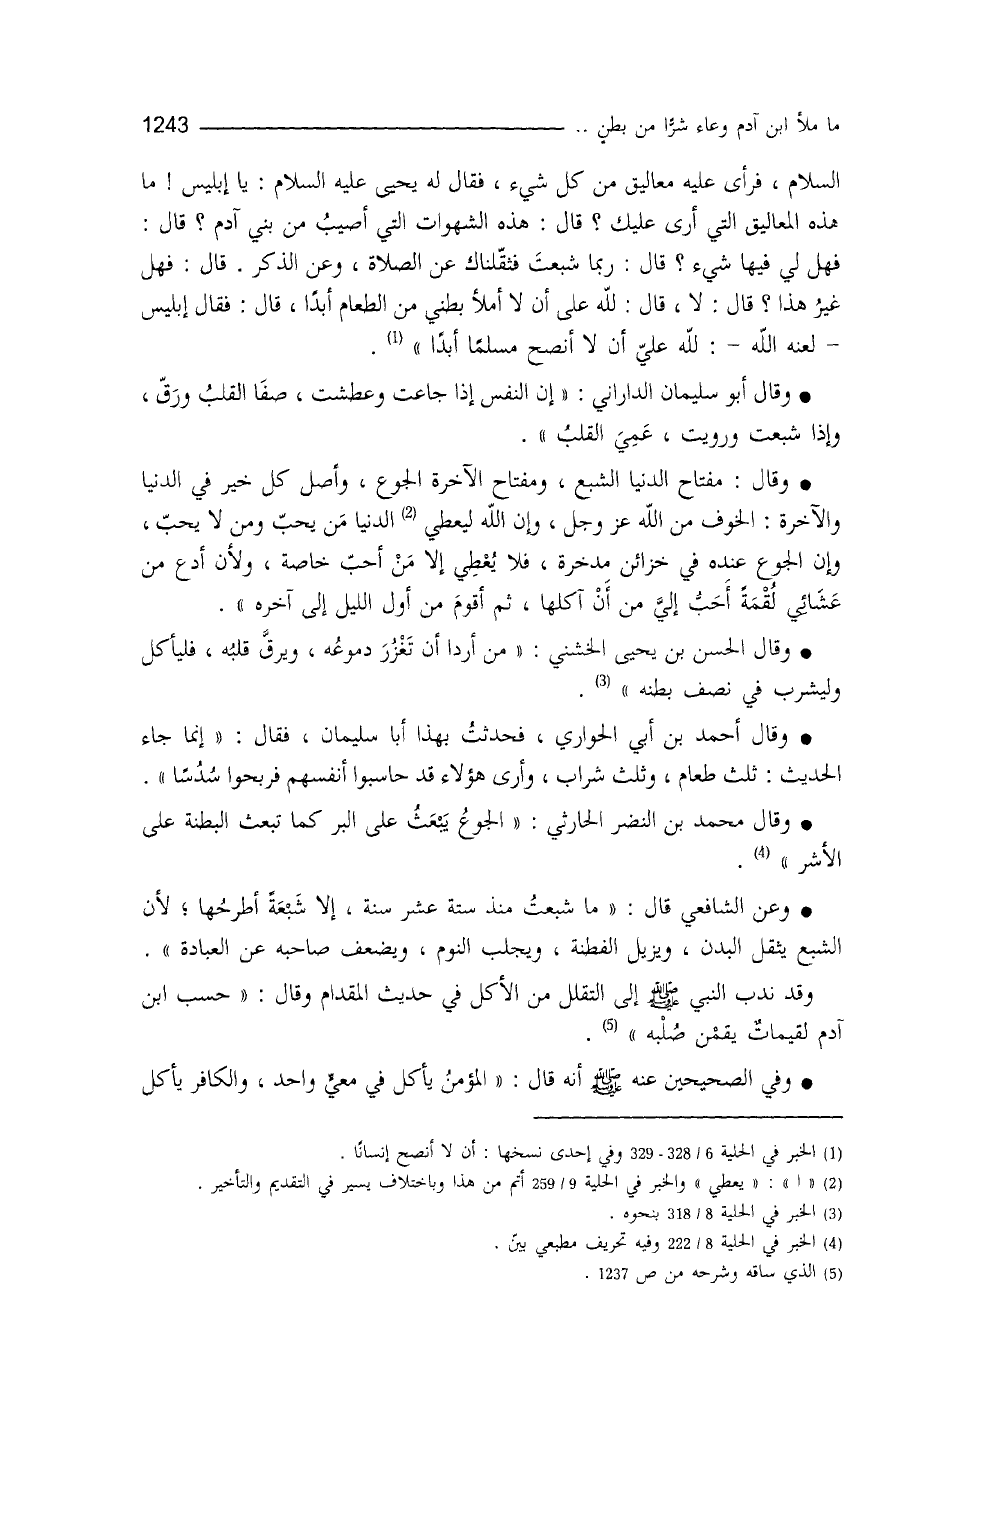 ما ملأ ابن آدم وعاء شرًّا من بطنٍ .. 1243
السلام ، فرأى عليه معاليق من كل شيء ، فقال له يحيى عليه السلام : يا إبليس ! ما
هذه المعاليق التي أرى عليك ؟ قال : هذه الشهوات التي أصيبُ من بني آدم ؟ قال :
فهل لي فيها شيء ؟ قال : ربما شبعتَ فثقّلناك عن الصلاة ، وعن الذكر . قال : فهل
غيرُ هذا ؟ قال : لا ، قال : للّه على أن لا أملأ بطني من الطعام أبدًا ، قال : فقال إبليس
– لعنه اللّه – : للّه عليّ أن لا أنصح مسلمًا أبدًا » (1) .
● وقال أبو سليمان الداراني : « إن النفس إذا جاعت وعطشت ، صفَا القلبُ ورَقّ ،
وإذا شبعت ورويت ، عَمِيَ القلبُ » .
● وقال : مفتاح الدنيا الشبع ، ومفتاح الآخرة الجوع ، وأصل كل خير في الدنيا
والآخرة : الخوف من اللّه عز وجل ، وإن اللّه ليعطي (2) الدنيا مَن يحبّ ومن لا يحبّ ،
وإن الجوع عنده في خزائن مدخرة ، فلا يُعْطِي إلا مَنْ أحبّ خاصة ، ولأن أدع من
عَشَائِي لُقْمَةً أَحَبُّ إليَّ من أَنْ آكلها ، ثم أقومَ من أول الليل إلى آخره » .
● وقال الحسن بن يحيى الخشني : « من أردا أن تَغْزُرَ دموعُه ، ويرقَّ قلبُه ، فليأكل
وليشرب في نصف بطنه » (3) .
● وقال أحمد بن أبي الحواري ، فحدثتُ بهذا أبا سليمان ، فقال : « إنما جاء
الحديث : ثلث طعام ، وثلث شراب ، وأرى هؤلاء قد حاسبوا أنفسهم فربحوا سُدُسًا » .
● وقال محمد بن النضر الحارثي : « الجوعُ يَبْعَثُ على البر كما تبعث البطنة على
الأشر » (4) .
● وعن الشافعي قال : « ما شبعتُ منذ ستة عشر سنة ، إلا شَبْعَةً أطرحُها ؛ لأن
الشبع يثقل البدن ، ويزيل الفطنة ، ويجلب النوم ، ويضعف صاحبه عن العبادة » .
وقد ندب النبي ﷺ إلى التقلل من الأكل في حديث المقدام وقال : « حسب ابن
آدم لقيماتٌ يقمْن صُلْبه » (5) .
● وفي الصحيحين عنه ﷺ أنه قال : « المؤمنُ يأكل في معيٍّ واحد ، والكافر يأكل
(1) الخبر في الحلية 6 / 328 - 329 وفي إحدى نسخها : أن لا أنصح إنسانًا .
(2) « ا » : « يعطي » والخبر في الحلية 9 / 259 أتم من هذا وباختلاف يسير في التقديم والتأخير .
(3) الخبر في الحلية 8 / 318 بنحوه .
(4) الخبر في الحلية 8 / 222 وفيه تحريف مطبعي بيّن .
(5) الذي ساقه وشرحه من ص 1237 .